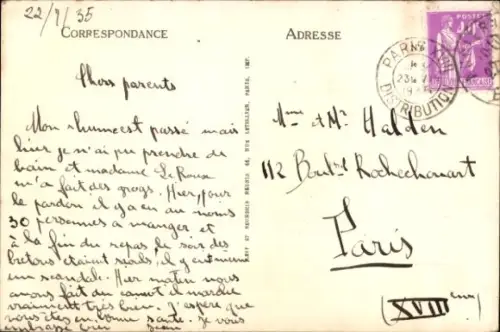 22/7/35
CORRESPONDANCE
ADRESSE
Chers parents
Mon rhume est passé mais
hier je n'ai pu prendre de
bain et madame Le Roux
m'a fait des grogs. Hier, pour
le pardon il y a eu au moins
30 personnes a manger et
à la fin du repas le soir des
bretons étaient saouls, il y en eut
un scandale. Hier matin nous
avons fait du canot il marche
vraiment très bien. J'espère que
vous êtes en bonne santé. Je vous
embrasse bien Jean
Mme et Mr Halden
112 Boulard Rochechouart
Paris
(XVIII eme)
PARIS XVIII
DISTRIBUTION
POSTES